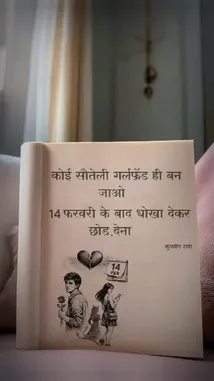 कोई सौतेली गर्लफ्रेंड ही बन
जाओ
14 फरवरी के बाद धोखा देकर
छोड़ देना
14
FEB